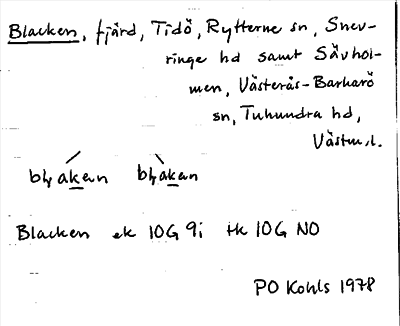 Blacken, fjärd, Tidö, Rytterne sn, Snev-
ringe hd samt Sävhol-
men, Västerås-Barkarö
sn, Tuhundra hd,
Västm.l.
Blacken ek 10G 9i tk 10G NO
PO Kohls 1978